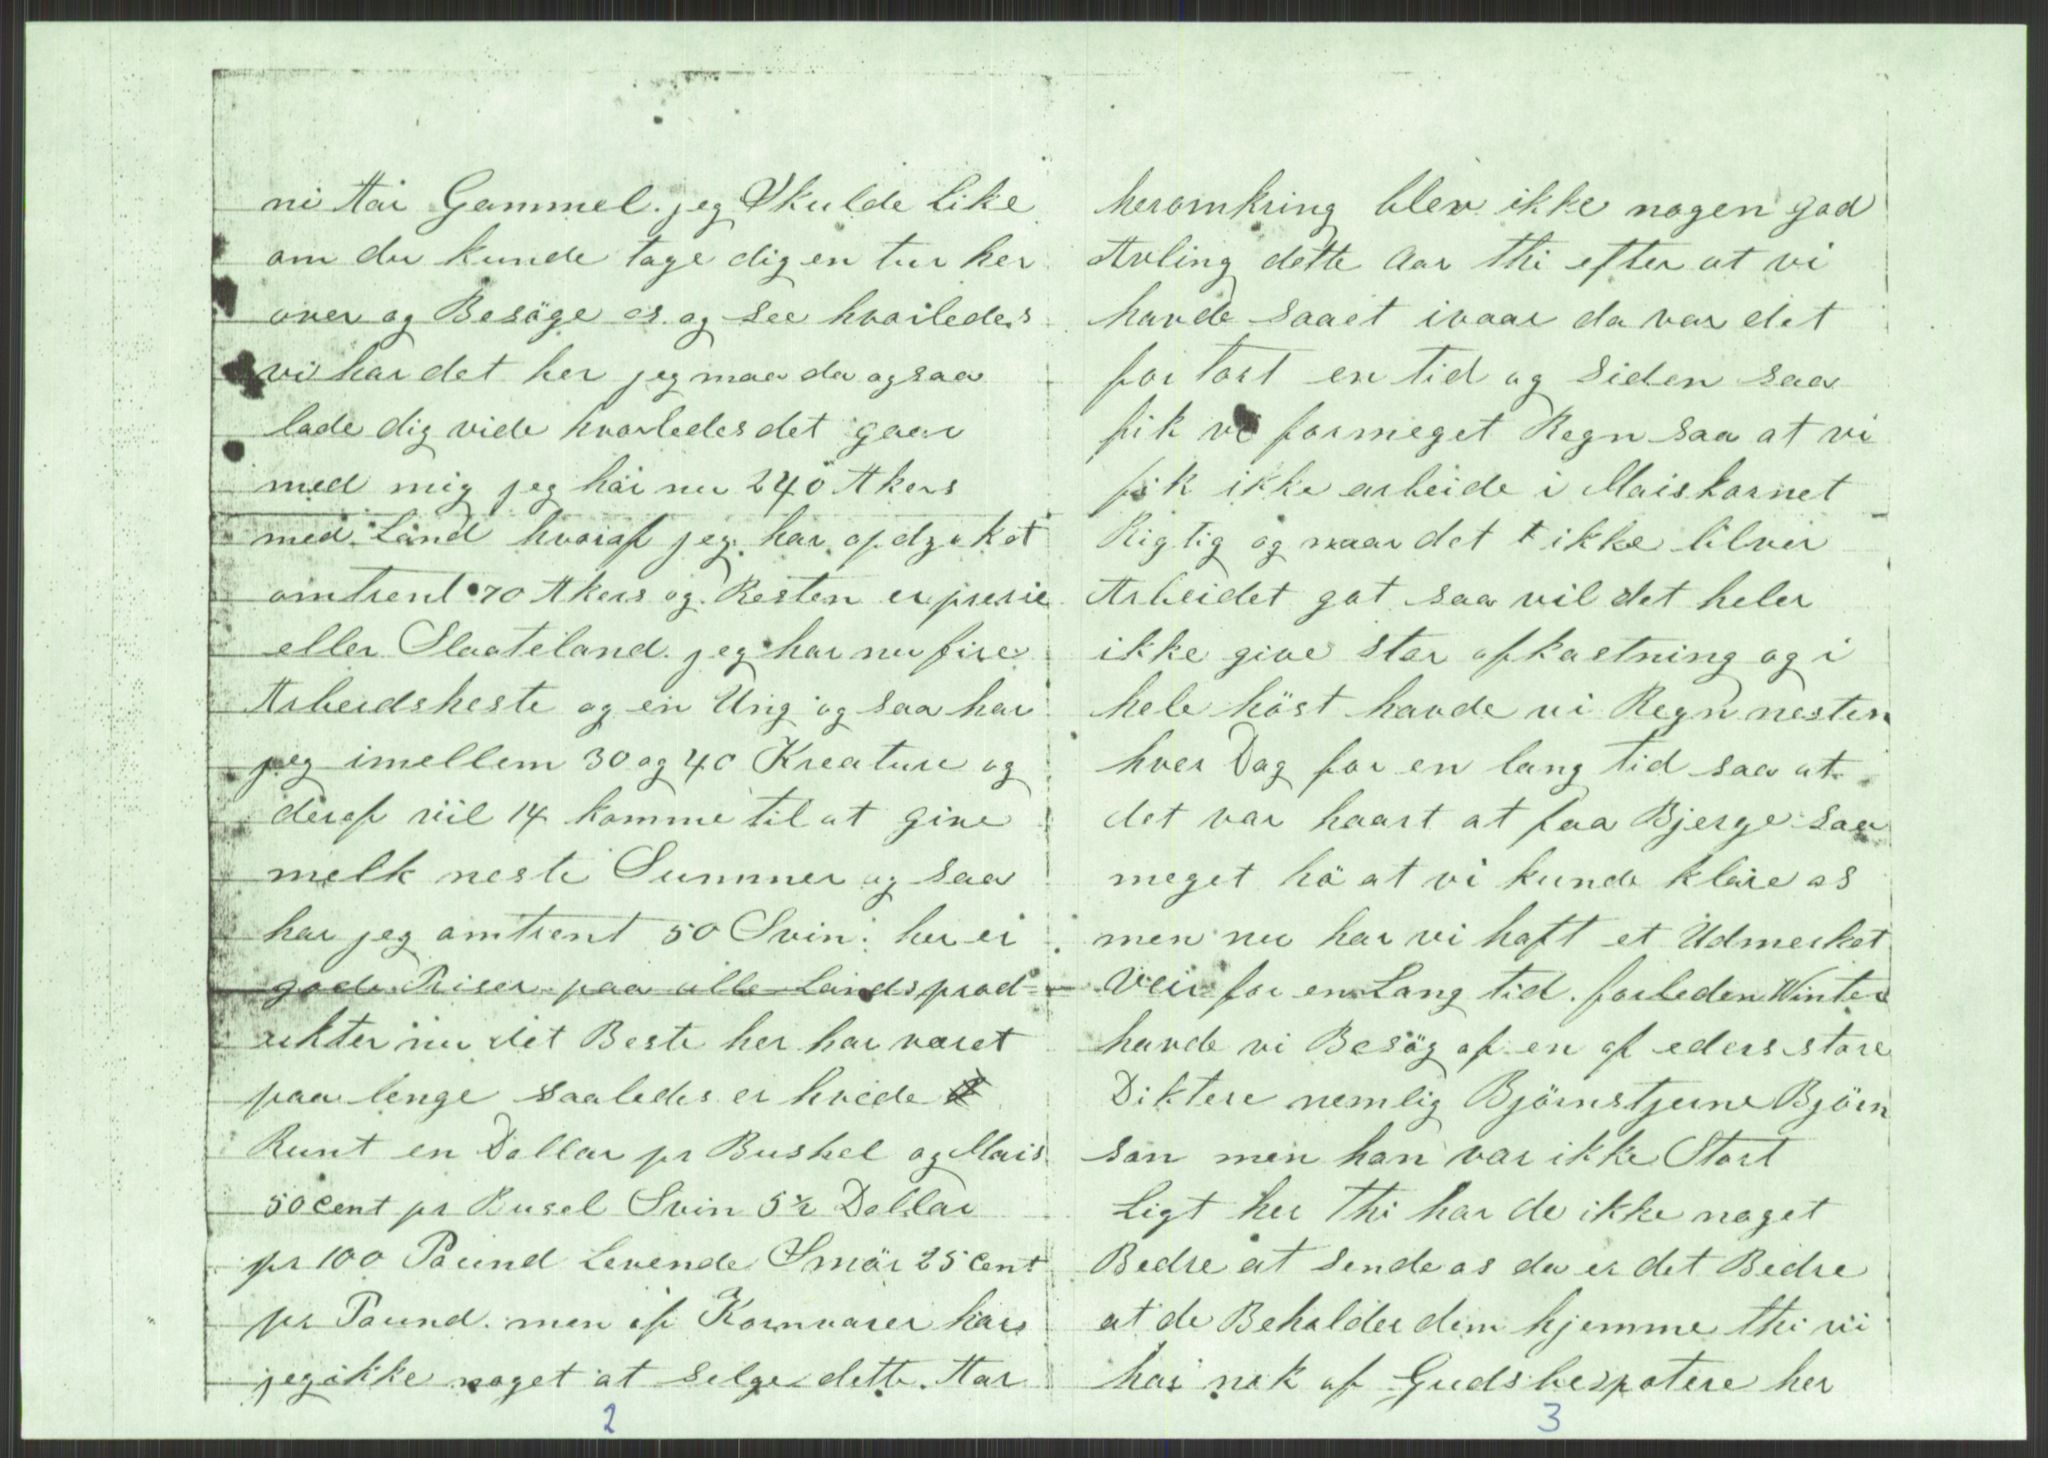 ni Aar Gammel. jeg Skulde Like
om du kunde tage dig en tur her
over og Besöge os og see hvorledes
vi har det her jeg maa da ogsaa
lade dig vide hvorledes det gaar
med mig jeg har nu 240 Akers
med Land hvoraf jeg har opdyrket
omtrent 70 Akers og Resten er prerie
eller Slaateland. jeg har nu fire
Arbeidsheste og en Ung og saa har
jeg imellem 30 og 40 Kreature og
deraf viil 14 komme til at give
melk neste Summer og saa
har jeg omtrent 50 Svin. her er
gode Priser paa alle Landsprod-
ukter nu det Beste her har været
paa lenge saaledes er hvede
Runt en Dollar pr Bushel og Mais
50 cent pr Busel Svin 5½ Dollar
pr 100 Paund Levende Smör 25 Cent
pr Paund. men af Kornvarer har
jeg ikke noget at selge dette Aar
2
heromkring blev ikke nogen god
Avling dette Aar thi efter at vi
havde saaet ivaar da var det
for tort en tid og siden saa
fik vi formeget Regn saa at vi
fik ikke arbeide i Maiskornet
Rigtig og naar det ikke bliver
Arbeidet got saa vil det heler
ikke give stor afkastning og i
hele höst havde vi Regn nesten
hver Dag for en lang tid saa at
det var haart at faa Bjerge saa
meget hö at vi kunde klare os
men nu har vi haft et Udmerket
Veir for en Lang tid. forleden Winter
havde vi Besög af en af eders store
Diktere nemlig Björnstjerne Björn
son men han var ikke Stort
Ligt her thi har de ikke noget
Bedre at sende os da er det Bedre
at de Beholder dem hjemme thi vi
har nok af Gudsbespotere her
3